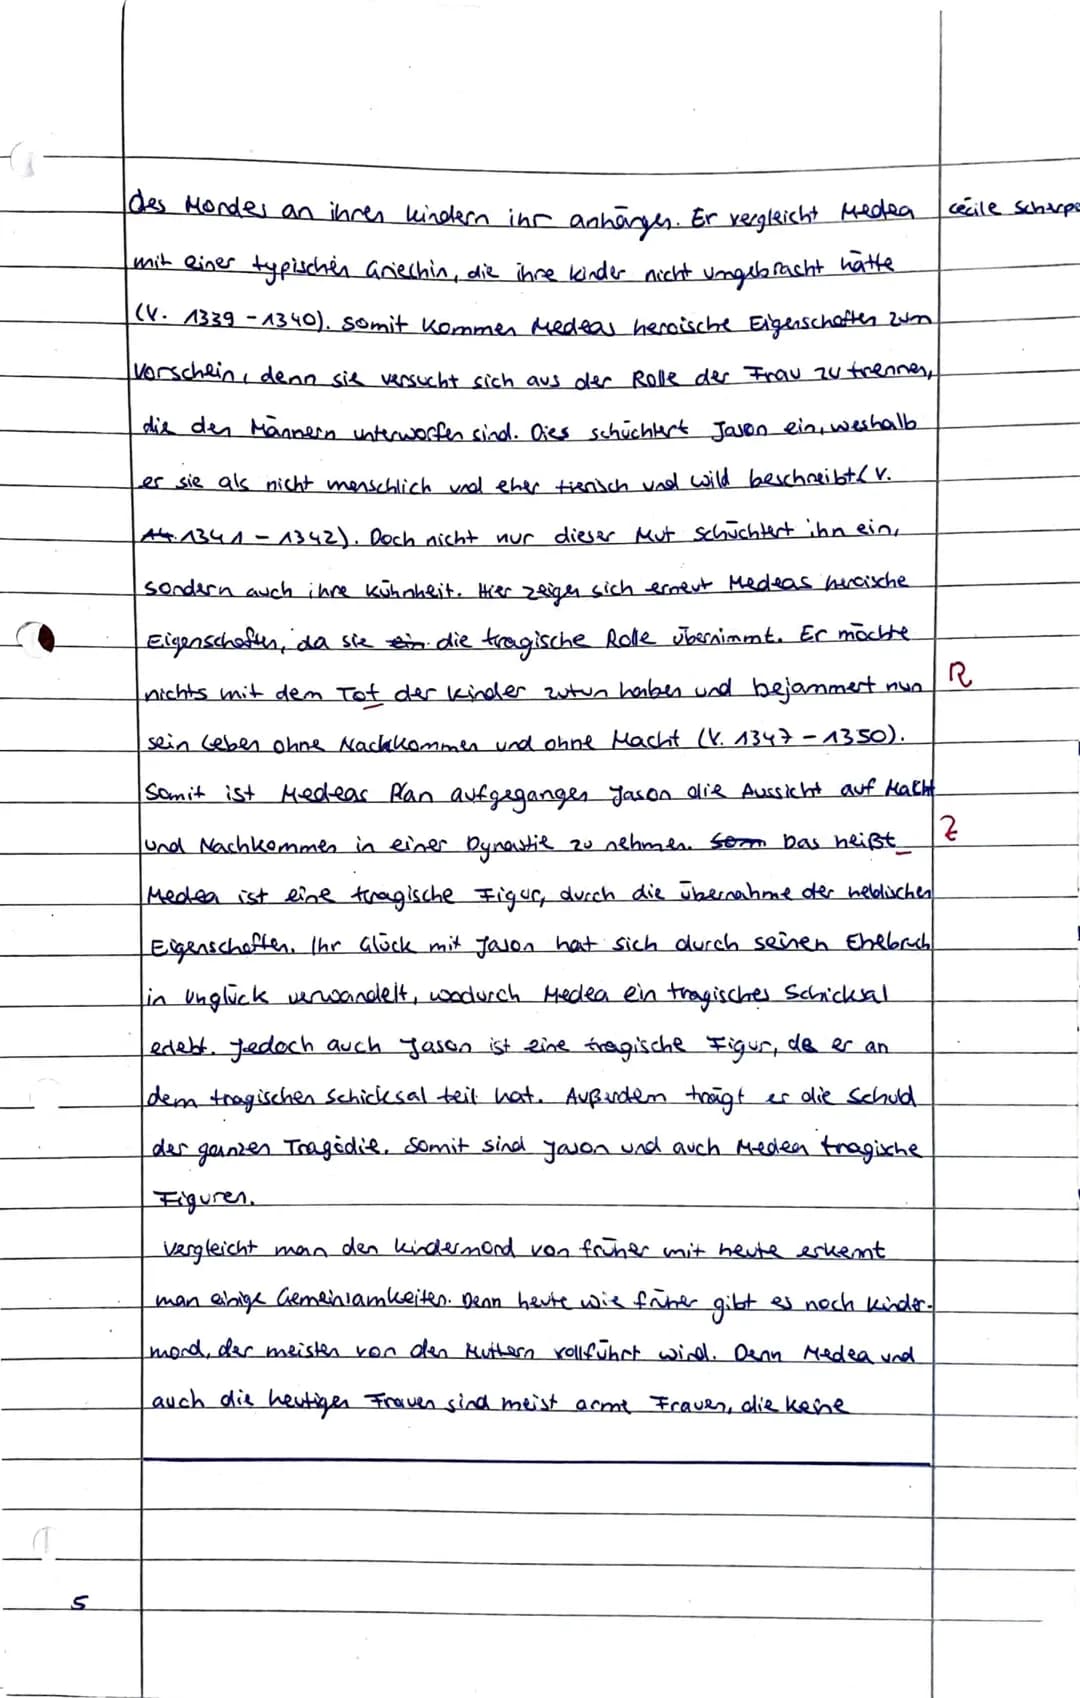 des Mordes an ihren Kindern ihr anhängen. Er vergleicht Medea
Cécile Scharpe
mit einer typischen Griechin, die ihre Kinder nicht umgebracht hätte
(V. 1339 - 1340). Somit kommen Medeas heroische Eigenschaften zum
Vorschein, denn sie versucht sich aus der Rolle der Frau zu trennen,
die den Männern unterworfen sind. Dies schüchtert Jason ein, weshalb
er sie als nicht menschlich und eher tierisch und wild beschreibt (V.
1341 - 1342). Doch nicht nur dieser Mut schüchtert ihn ein,
sondern auch ihre Kühnheit. Hier zeigen sich erneut Medeas heroische
Eigenschaften, da sie ein die tragische Rolle übernimmt. Er möchte
nichts mit dem Tot der Kinder zutun haben und bejammert nun
R
sein Leben ohne Nachkommen und ohne Macht (V. 1347 - 1350).
Somit ist Medeas Plan aufgegangen Jason die Aussicht auf Macht
und Nachkommen in einer Dynastie zu nehmen. Som Das heißt
Z
Medea ist eine tragische Figur, durch die Übernahme der heldischen
Eigenschaften. Ihr Glück mit Jason hat sich durch seinen Ehebruch
in Unglück verwandelt, wodurch Medea ein tragisches Schicksal
erlebt. Jedoch auch Jason ist eine tragische Figur, da er an
dem tragischen Schicksal teil hat. Außerdem trägt er die Schuld
der ganzen Tragödie. Somit sind Jason und auch Medea tragische
Figuren.
Vergleicht man den Kindermord von früher mit heute erkennt
man einige Gemeinsamkeiten. Denn heute wie früher gibt es noch Kinder-
mord, der meisten von den Müttern vollführt wird. Denn Medea und
auch die heutigen Frauen sind meist arme Frauen, die keine
5